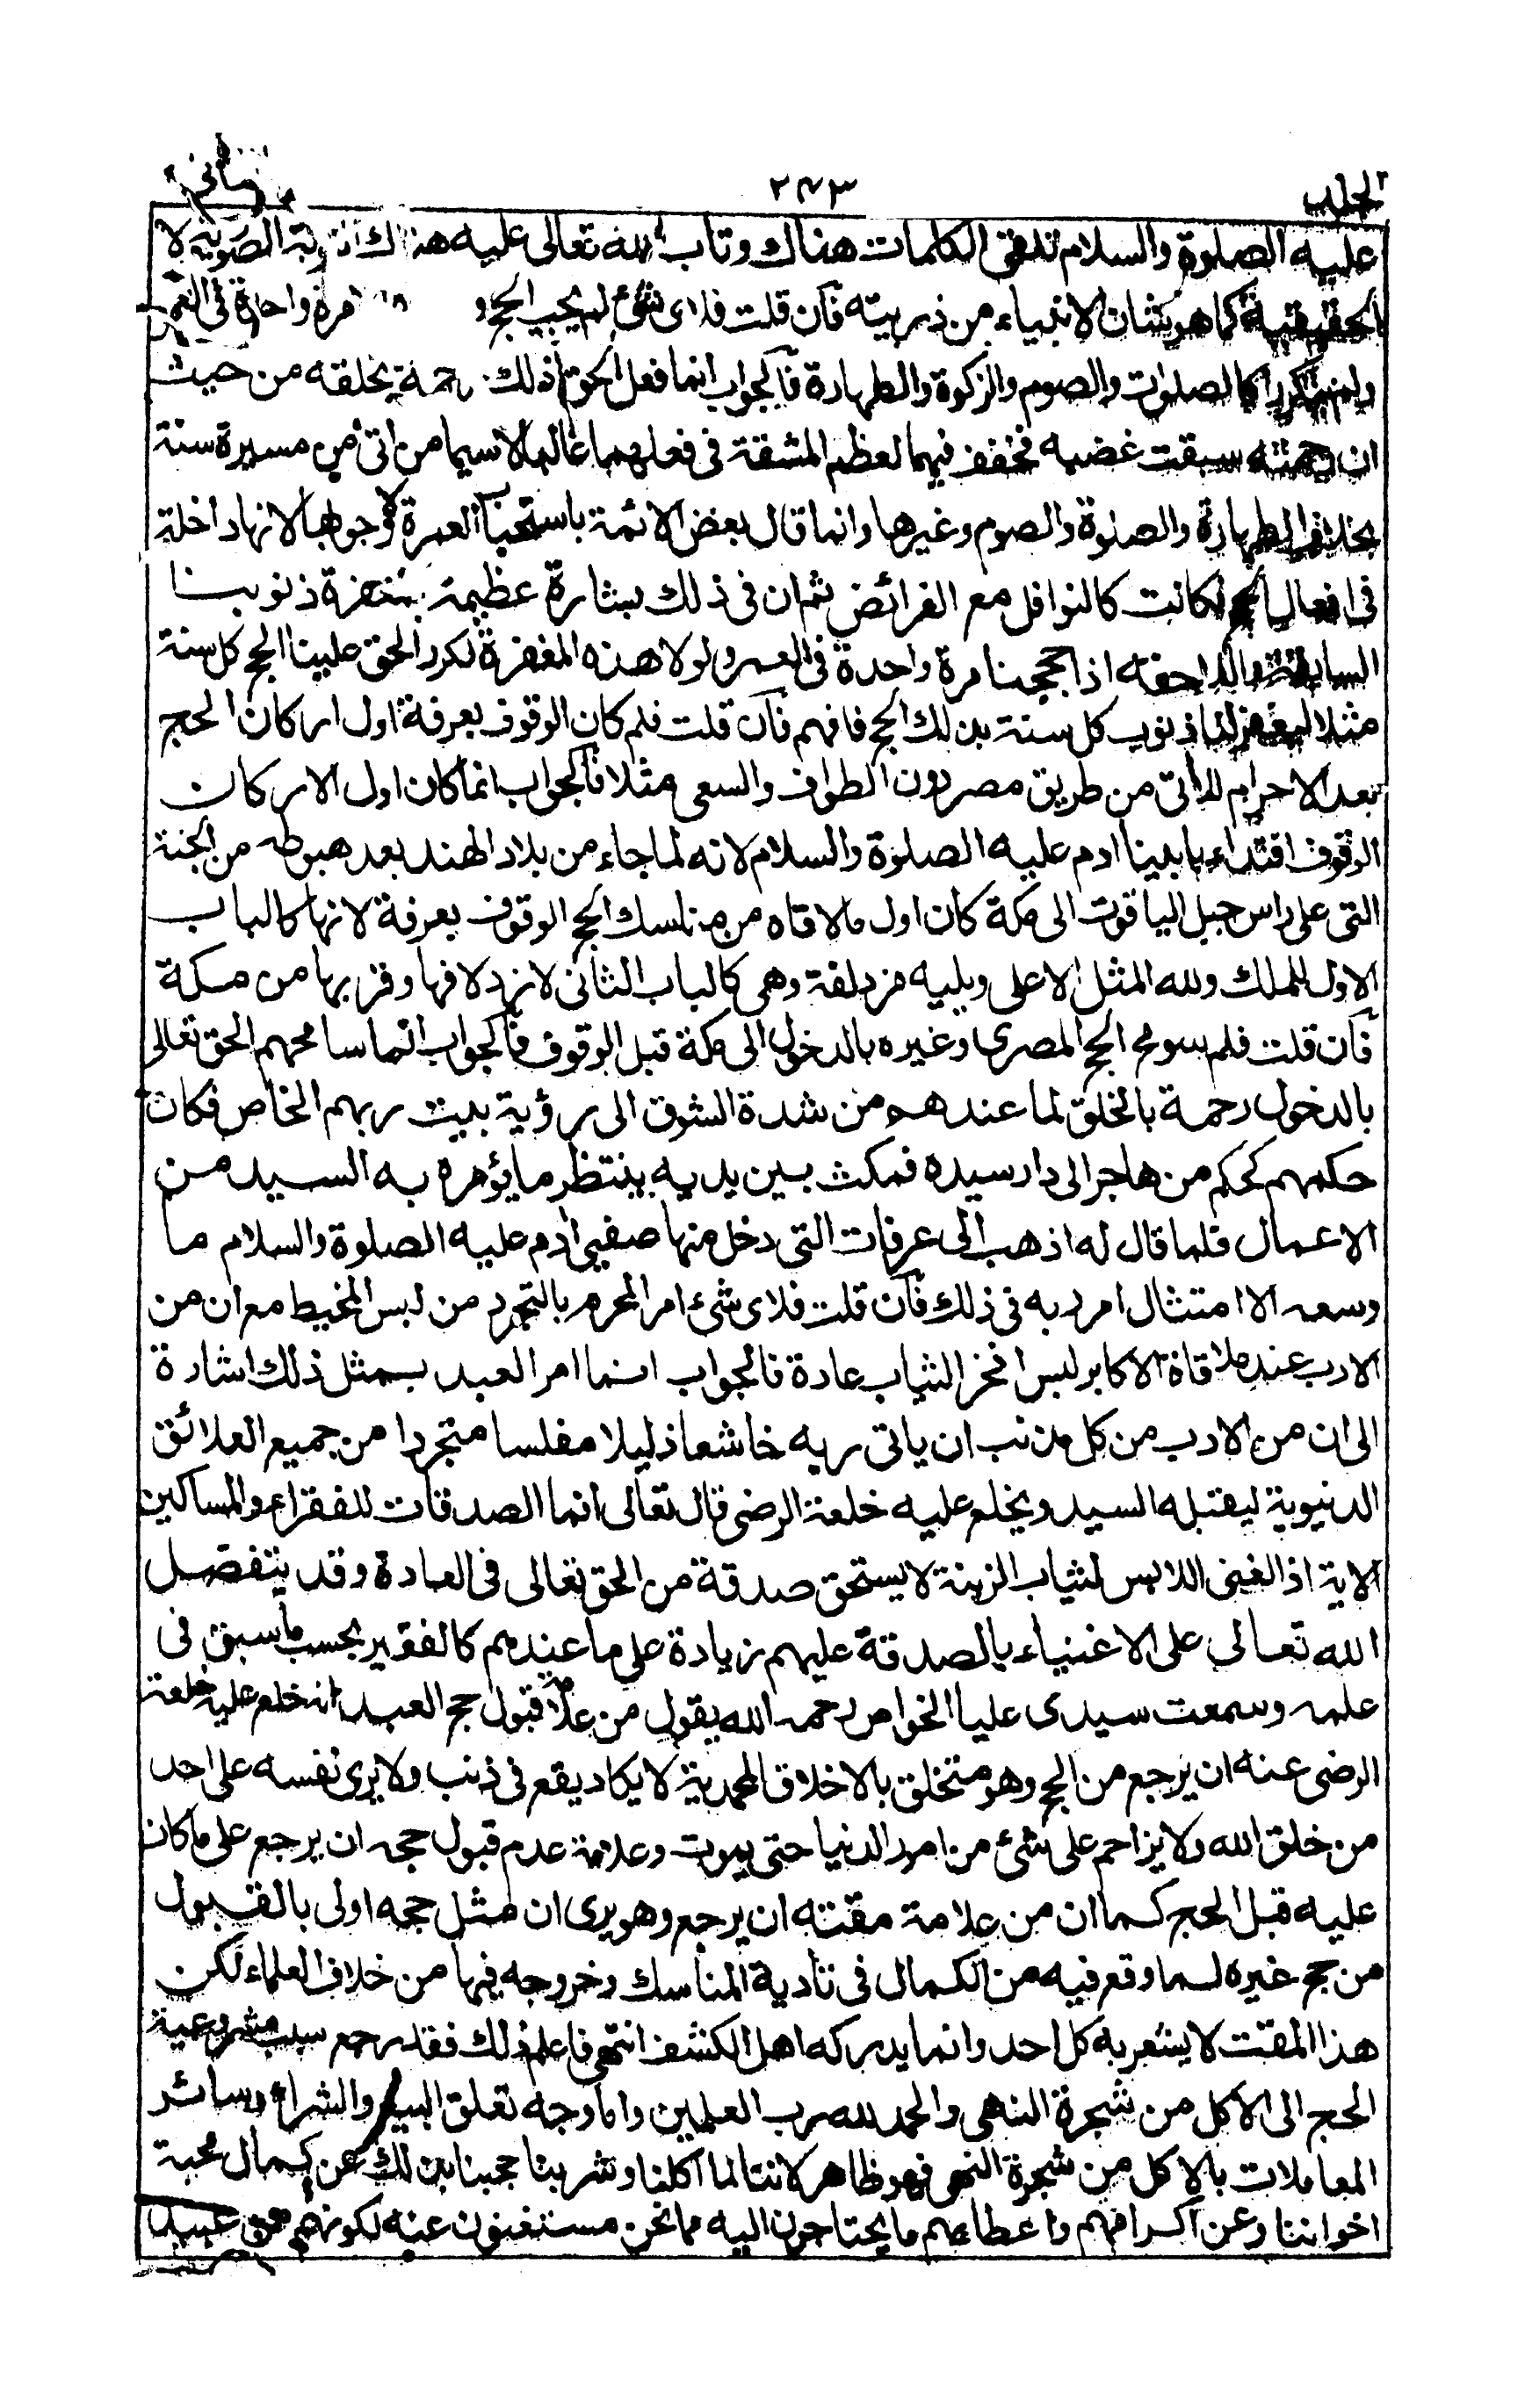 الجلد ٢٤٣ الثانى
عليه الصلوة والسلام تلقى الكلمات هناك وتاب الله تعالى عليه هناك التوبة الصورية لا
الحقيقية كما هو شان الانبياء من ذريته فان قلت فلاى شئ لم يجب الحج و مرة واحدة فى العمر
ولم يتكرر كالصلوات والصوم والزكوة والطهارة فالجواب انما فعل الحق ذلك رحمة بخلقه من حيث
ان رحمته سبقت غضبه فخفف فيهما لعظم المشقة فى فعلهما غالبا لاسيما من اتى من مسيرة سنة
بخلاف الطهارة والصلوة والصوم وغيرها وانما قال بعض الائمة باستحباب العمرة لا وجوبها لانها داخلة
فى افعال الحج فكانت كالنوافل مع الفرائض ثم ان فى ذلك بشارة عظيمة بمغفرة ذنوبنا
السابقة واللاحقة اذا حججنا مرة واحدة فى العمر ولولا هذه المغفرة لكرر الحق علينا الحج كل سنة
مثلا ليغفر لنا ذنوب كل سنة بذلك الحج فافهم فان قلت فلم كان الوقوف بعرفة اول اركان الحج
بعد الاحرام للآتى من طريق مصر دون الطواف والسعى مثلا فالجواب انما كان اول الاركان
الوقوف اقتداء بابينا ادم عليه الصلوة والسلام لانه لما جاء من بلاد الهند بعد هبوطه من الجنة
التى على راس جبل الياقوت الى مكة كان اول ما لاقاه من مناسك الحج الوقوف بعرفة لانها كالباب
الاول للملك ولله المثل الاعلى ويليه مزدلفة وهى كالباب الثانى لازدلافها وقربها من مكة
فان قلت فلم سومح الحج المصرى وغيره بالدخول الى مكة قبل الوقوف فالجواب انما سامحهم الحق تعالى
بالدخول رحمة بالخلق لما عندهم من شدة الشوق الى رؤية بيت ربهم الخاص فكان
حكمهم كحكم من هاجر الى دار سيده فمكث بين يديه ينتظر ما يؤمره به السيد من
الاعمال فلما قال له اذهب الى عرفات التى دخل منها صفيى ادم عليه الصلوة والسلام ما
وسعه الا امتثال امر ربه فى ذلك فان قلت فلاى شئ امر المحرم بالتجرد من لبس المخيط مع ان من
الادب عند ملاقاة الاكابر لبس افخر الثياب عادة فالجواب انما امر العبد بمثل ذلك اشارة
الى ان من الادب من كل مذنب ان ياتى ربه خاشعا ذليلا مفلسا متجردا من جميع العلائق
الدنيوية ليقتبله السيد ويخلع عليه خلعة الرضى قال تعالى انما الصدقات للفقراء والمساكين
الاية اذ الغنى اللابس لثياب الزينة لا يستحق صدقة من الحق تعالى فى العادة وقد يتفضل
الله تعالى على الاغنياء بالصدقة عليهم زيادة على ما عندهم كالفقير بحسب ما سبق فى
علمه وسمعت سيدى عليا الخواص رحمه الله يقول من علامة قبول حج العبد انه خلع عليه خلعة
الرضى عنه ان يرجع من الحج وهو متخلق بالاخلاق المحمدية لا يكاد يقع فى ذنب ولا يرى نفسه على احد
من خلق الله ولا يزاحم على شئ من امور الدنيا حتى يموت وعلامة عدم قبول حجه ان يرجع على ما كان
عليه قبل الحج كما ان من علامة مقته ان يرجع وهو يرى ان مثل حجه اولى بالقبول
من حج غيره لما وقع فيه من الكمال فى تادية المناسك وخروجه فيها من خلاف العلماء لكن
هذا المقت لا يشعر به كل احد وانما يدركه اهل الكشف انتهى فاعلم ذلك فقد رجع سبب مشروعية
الحج الى الاكل من شجرة النهى والحمد لله رب العلمين واما وجه تعلق البيع والشراء وسائر
المعاملات بالاكل من شجرة النهى فهو ظاهر لاننا لما اكلنا وشربنا حجبنا بذلك عن كمال محبة
اخواننا وعن اكرامهم واعطائهم ما يحتاجون اليه مما نحن مستغنون عنه لكونهم من عبيد